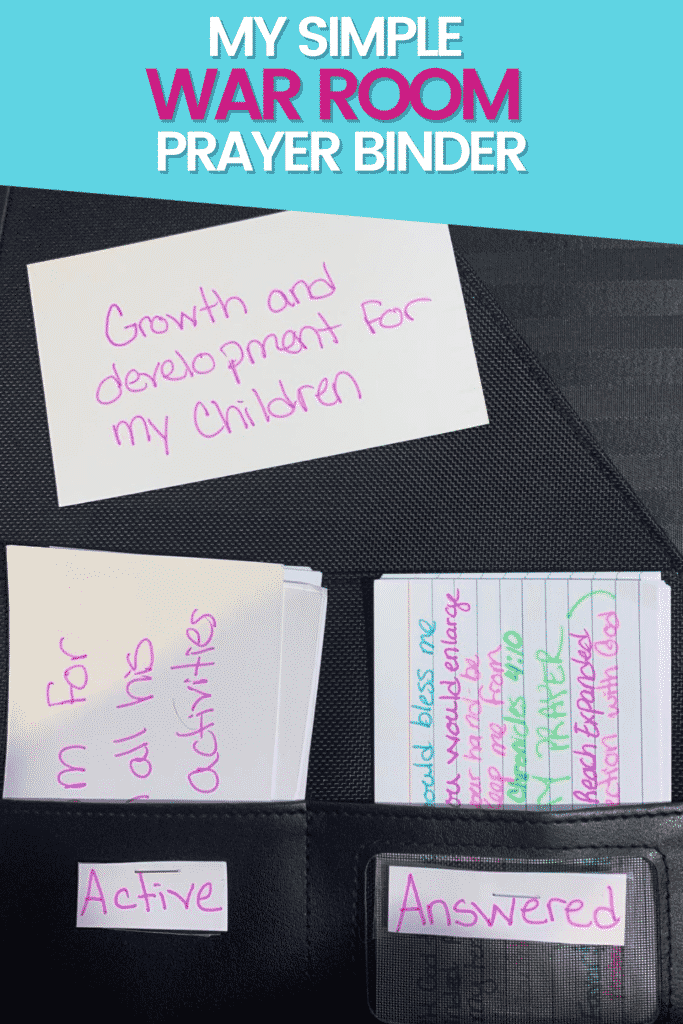 MY SIMPLE
WAR ROOM
PRAYER BINDER
Growth and
development for
my children
m for
all his
activities
ould bless me
ou would enlarge
our hand be
keep me from
Chronicles 4:10
Y PRAYER
Reach Expanded
ction with God
Active
Answered